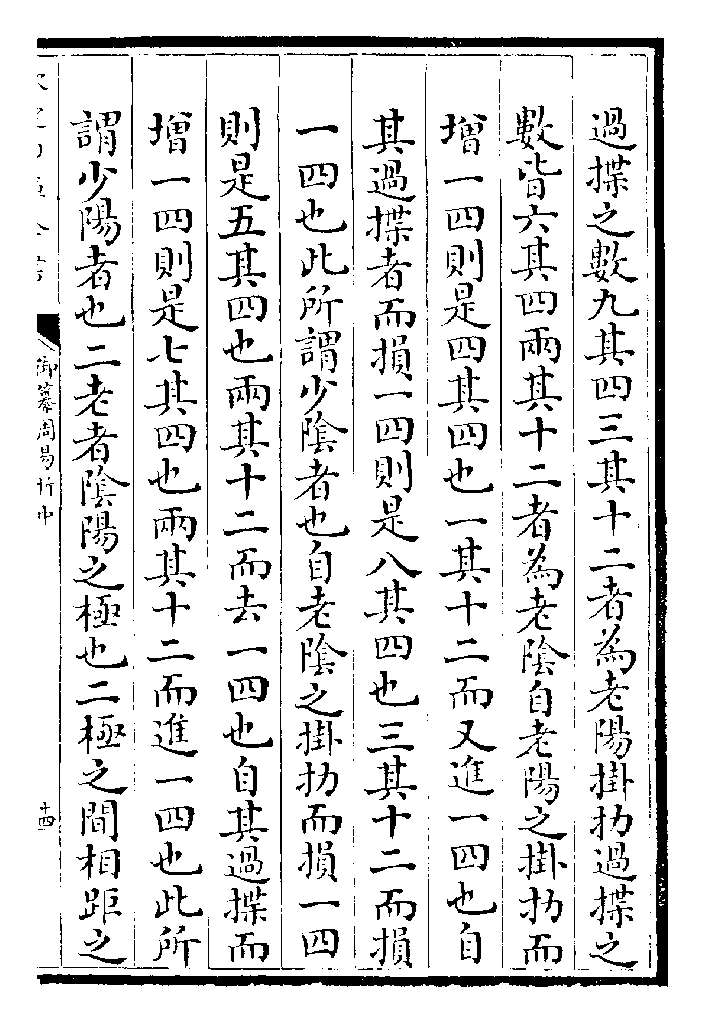 過揲之數九其四三其十二者為老陽掛扐過揲之
數皆六其四兩其十二者為老陰自老陽之掛扐而
增一四則是四其四也一其十二而又進一四也自
其過揲者而損一四則是八其四也三其十二而損
一四也此所謂少陰者也自老陰之掛扐而損一四
則是五其四也兩其十二而去一四也自其過揲而
增一四則是七其四也兩其十二而進一四也此所
謂少陽者也二老者陰陽之極也二極之間相距之
御纂周易折中
十四